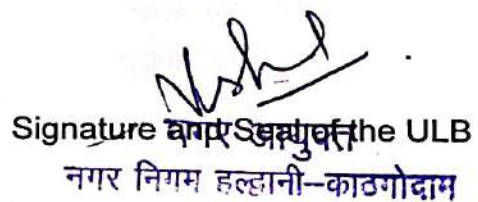 Signature and Seal of the ULB
नगर आयुक्त
नगर निगम हल्द्वानी-काठगोदाम